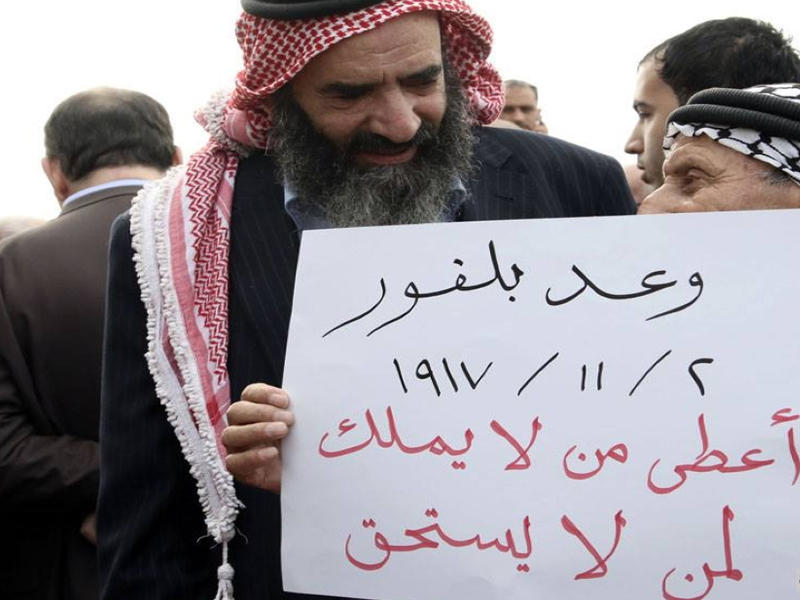 وعد بلفور
٢ / ١١ / ١٩١٧
أعطى من لا يملك
لمن لا يستحق